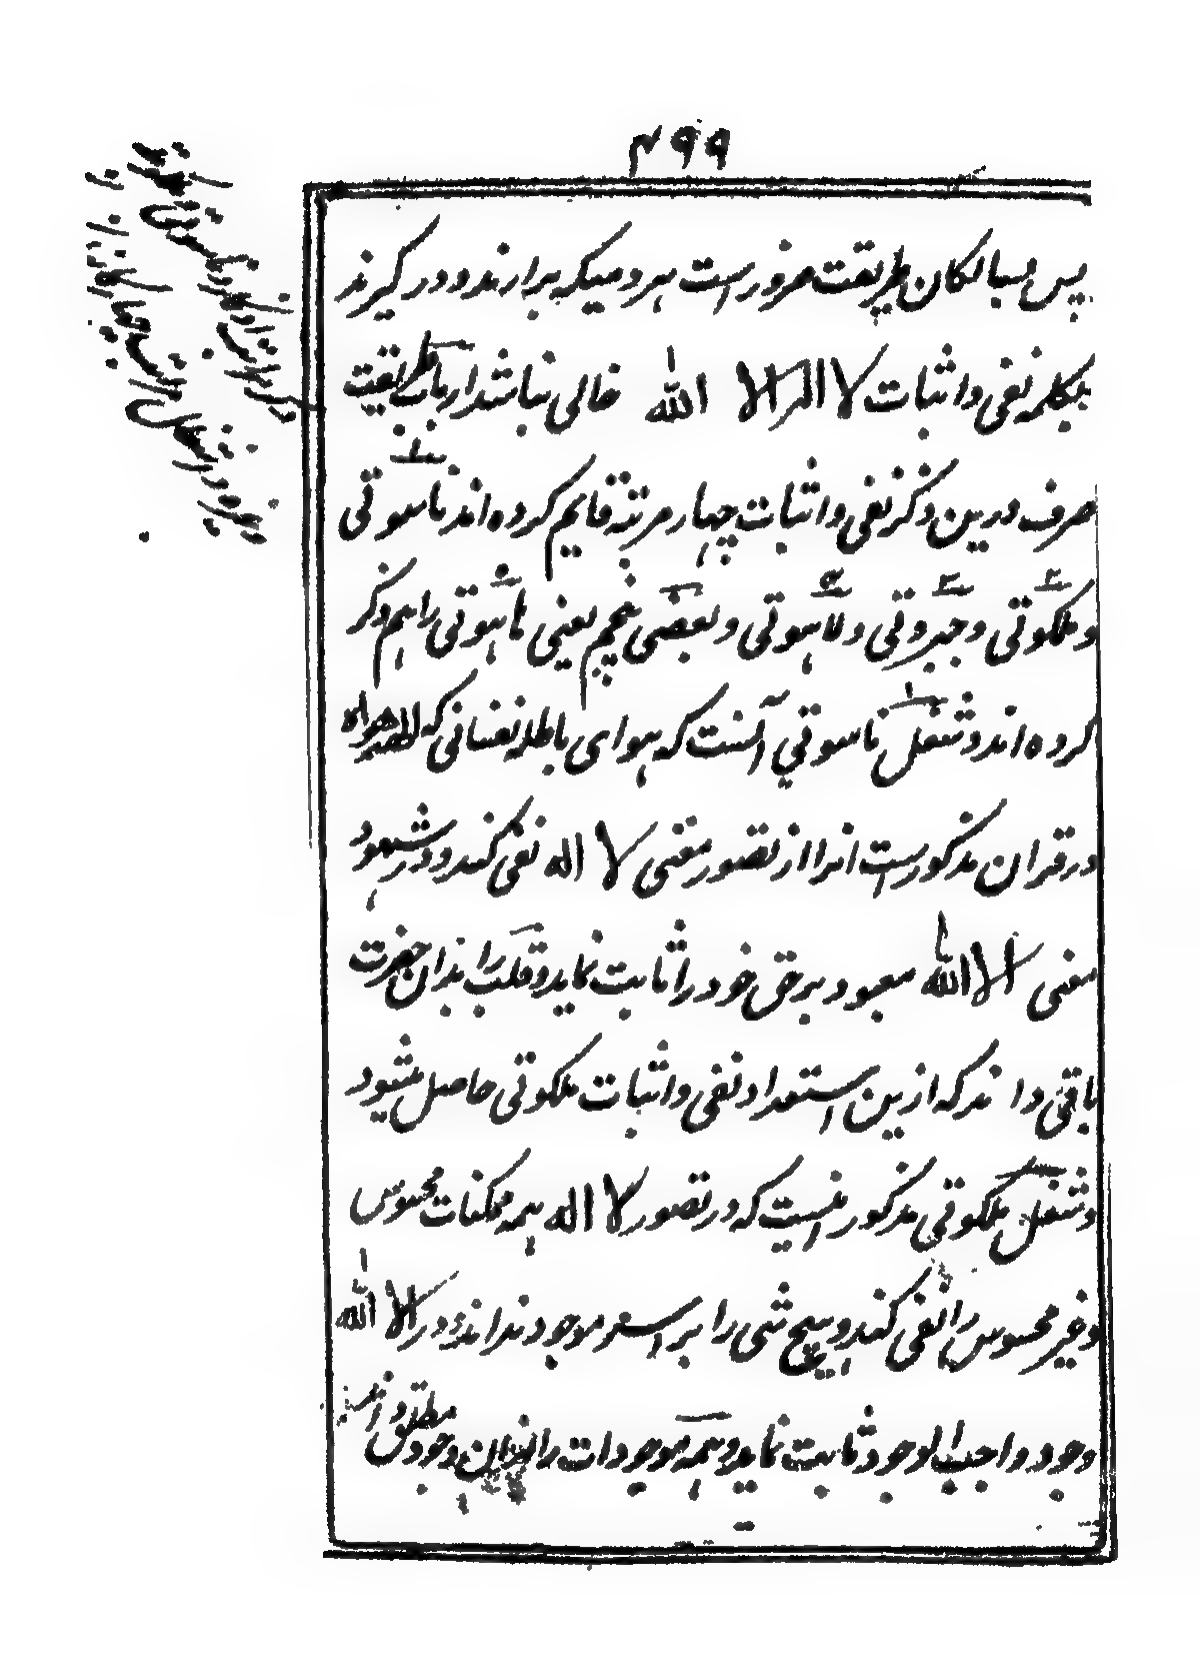 ۴۹۹
پس بسالکان طریقت ضرورست هر دمیکه برارند و درگیرند
بکلمه نفی و اثبات لا اله الا الله خالی نباشد ارباب طریقت
صرف درین ذکر نفی و اثبات چهار مرتبه قایم کرده اند ناسوتی
و ملکوتی و جبروتی و لاهوتی و بعضی پنجم یعنی هاهوتی را هم ذکر
کرده اند و شغل ناسوتی آنست که هوای باطله نفسانی که الهه هواه
در قران مذکورست انرا از تصور معنی لا اله نفی کند و در شهود
معنی الا الله معبود برحق خود را ثابت نماید و قلب را بدان حضرت
باقی داند که ازین استعداد نفی و اثبات ملکوتی حاصل میشود
و شغل ملکوتی مذکور اینست که در تصور لا اله همه ممکنات محسوس
و غیر محسوس را نفی کند و هیچ شی را بر اسه موجود نداند و در الا الله
وجود واجب الوجود ثابت نماید و همه موجودات را ازان وجود مطلق